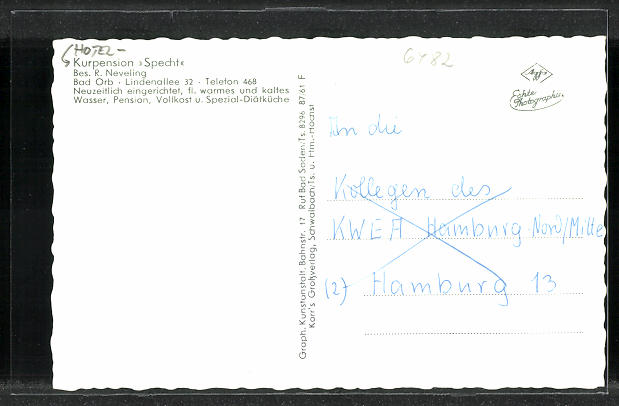 HOTEL-
Kurpension »Specht«
Bes. R. Neveling
Bad Orb · Lindenallee 32 · Telefon 468
Neuzeitlich eingerichtet, fl. warmes und kaltes
Wasser, Pension, Vollkost u. Spezial-Diätküche
Graph. Kunstanstalt, Bahnstr. 17 Ruf Bad Soden/Ts. 8296 87/61 F
Karr's Großverlag, Schwalbach/Ts. u. Ffm.-Höchst
6482
Agfa
Echte
Photographie
An die
Kollegen des
KWEA Hamburg Nord/Mitte
(2) Hamburg 13